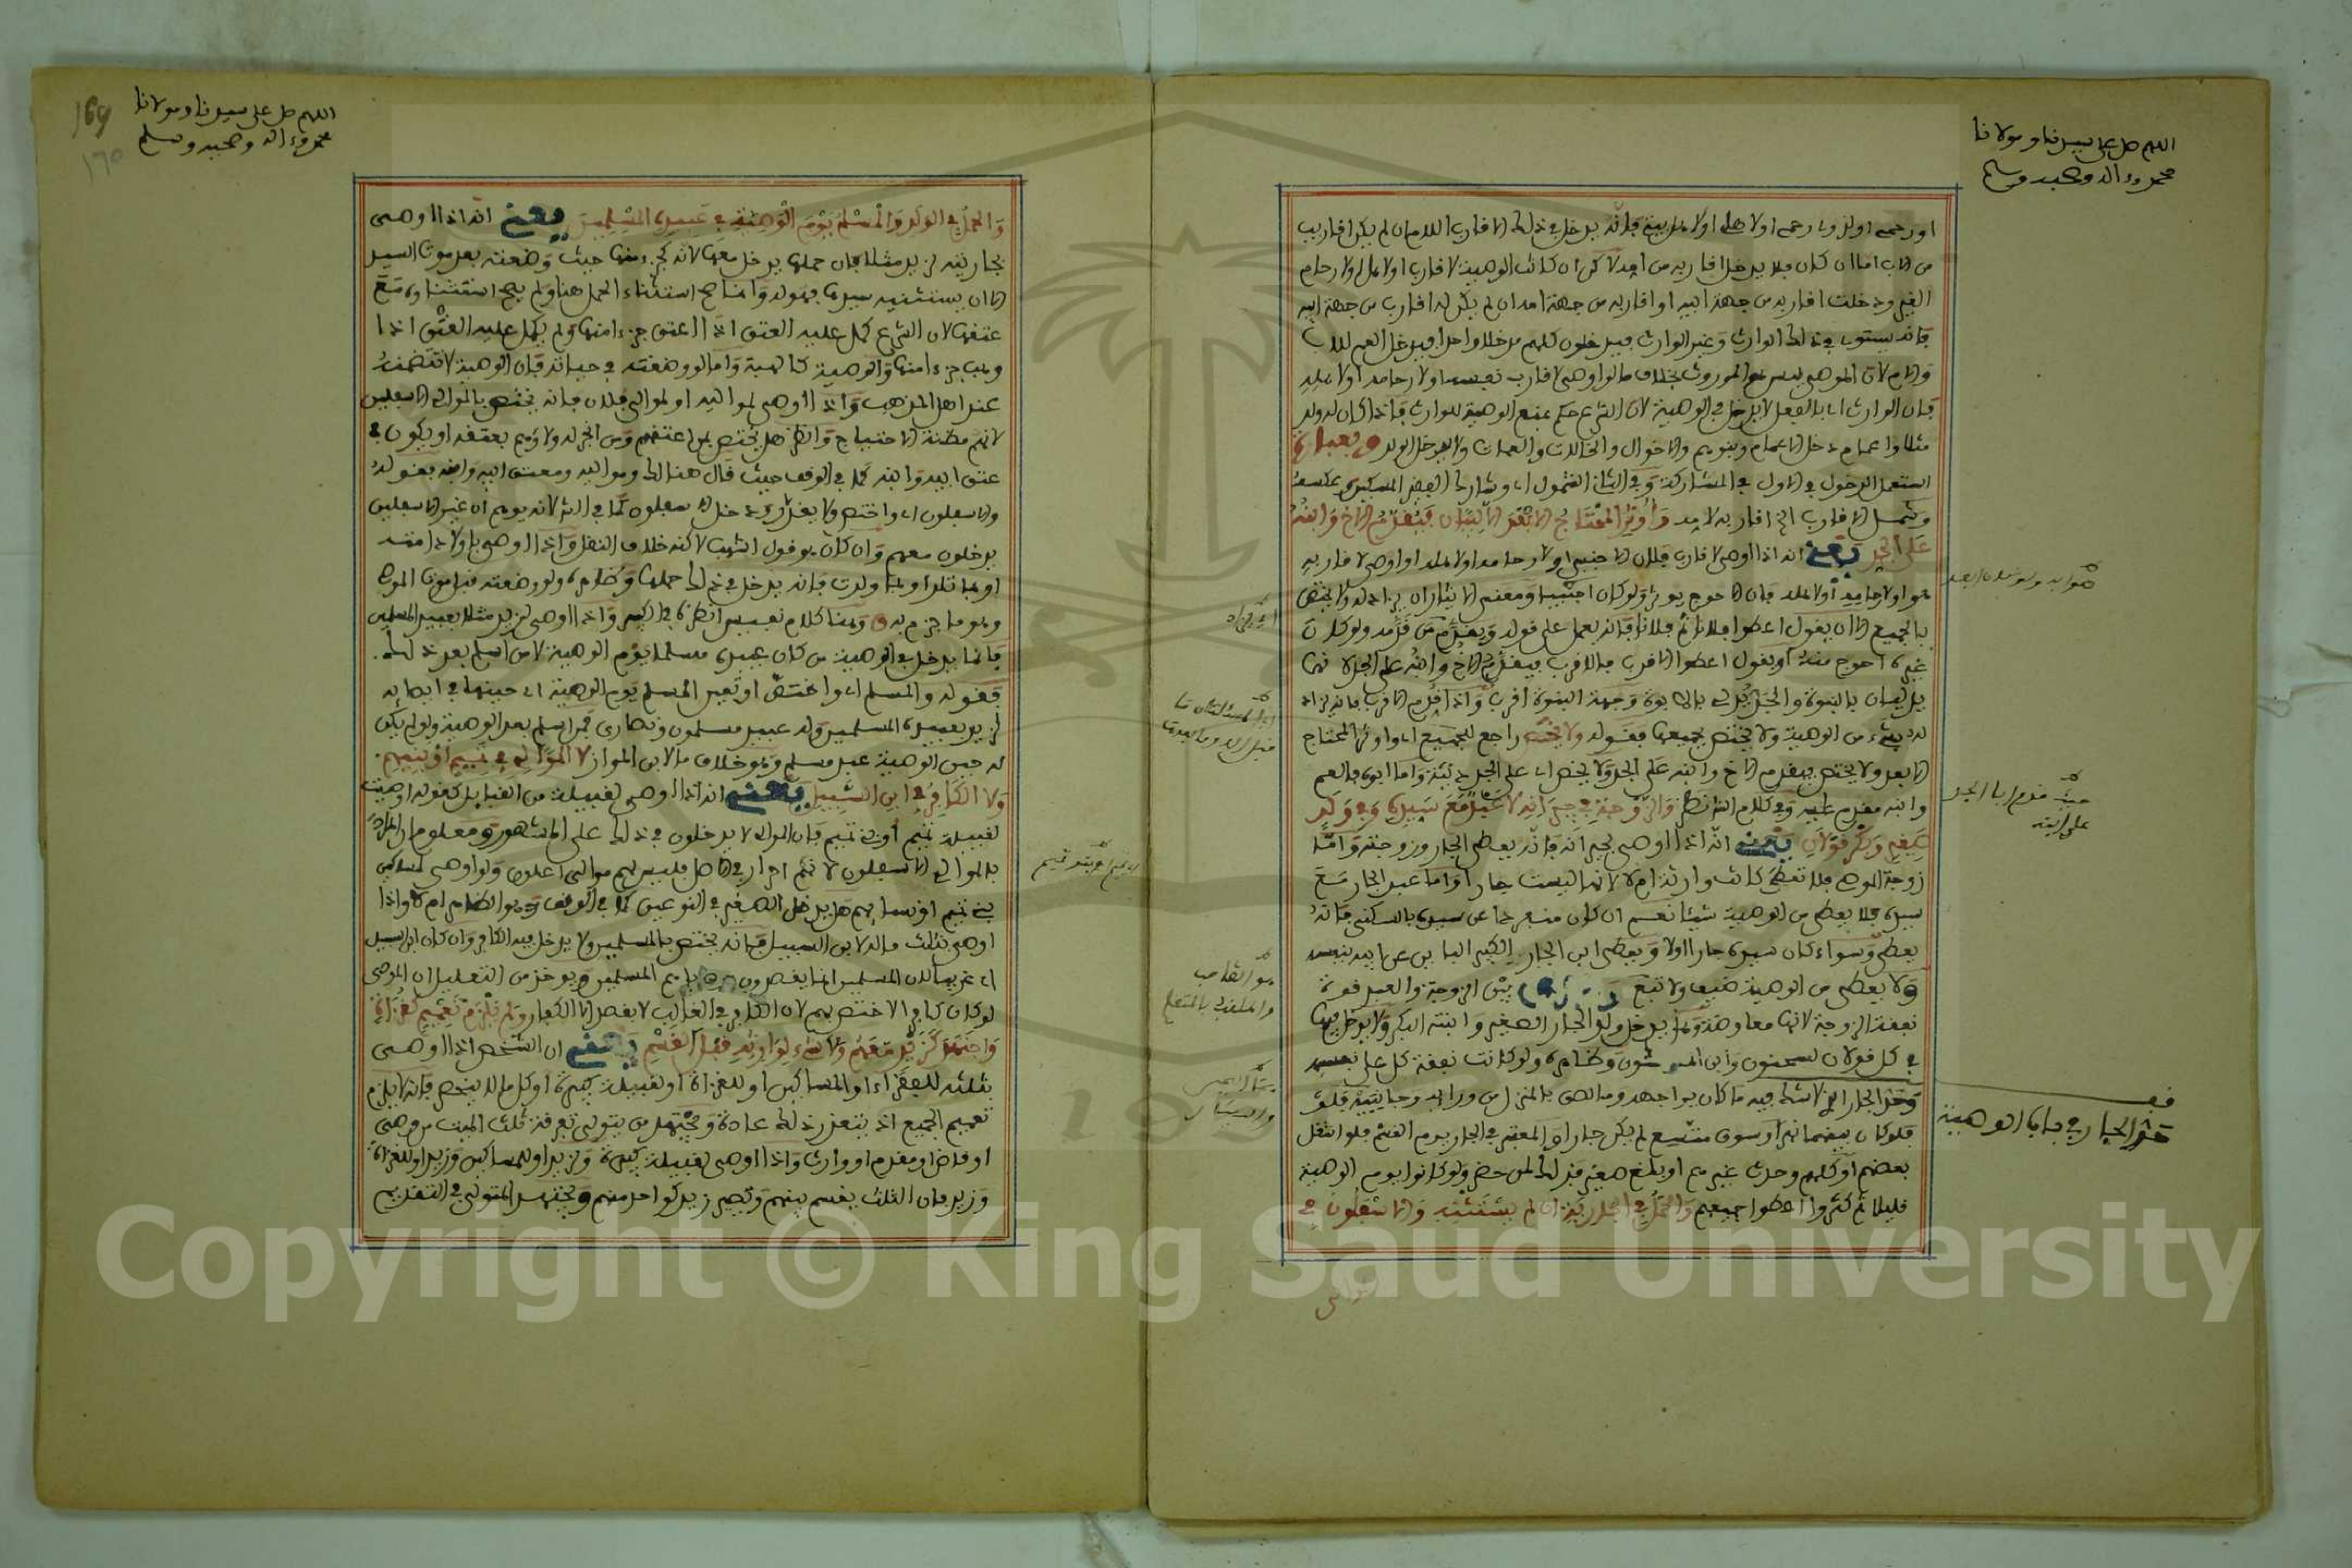 اللهم صل على سيدنا ومولانا
محمد وءاله وصحبه وسلم
او رحمه او لذوي رحمه او لاهله او لاهل بيته فانه يدخل في ذلك الاقارب للام ان لم يكن اقارب
من الاب اما ان كان فلا يدخل اقاربه من امه لاكن ان كانت الوصية لاقارب او لاهل او لارحام
الغير دخلت اقاربه من جهة ابيه او اقاربه من جهة امه ان لم يكن له اقارب من جهة ابيه
فانه يستوي في ذلك الوارث وغير الوارث فيدخلون كلهم مدخلا واحدا فيدخل العم للاب
والام لان الموصي ليس هو الموروث بخلاف ما لو اوصى لاقارب نفسه او لارحامه او لاهله
فان الوارث له بالفعل لا يدخل في الوصية لان الشرع حكم بمنع الوصية للوارث فاذا كان له ولد
مثلا واعمام دخل الاعمام وبنوهم والاخوال والخالات والعمات ولا يدخل الولد
استعمل الدخول في الاول في المشاركة وفي الثاني الشمول اي وشارك الفقير المسكين عكسه
وشمل الاقارب الخ اقاربه لامه واوثر المحتاج الابعد الا لبيان فيقدم الاخ وابنه
على الجد يعني انه اذا اوصى لاقارب فلان الاجنبي او لارحامه او لاهله او اوصى لاقاربه
هو او لارحامه او لاهله فان الاحوج يوثر ولو كان اجنبيا ومعنى الايثار ان يزاد له ولا يختص
بالجميع الا ان يقول اعطوا فلانا ثم فلانا فانه يعمل على قوله ويقدم من قدمه ولو كان
غيره احوج منه او يقول اعطوا الاقرب فالاقرب فيقدم الاخ وابنه على الجد لانهما
يدليان بالبنوة والجد يدلي بالابوة وجهة البنوة اقرب واذا قدم الاقرب فانه يزاد
له شيء من الوصية ولا يختص بجميعها فقوله ولا يختص راجع للجميع اي واوثر المحتاج
الابعد ولا يختص فيقدم الاخ وابنه على الجد ولا يخص اي على الجد وابنه واما ابوه فالعم
وابنه مقدم عليه وفي كلام الشارح نظر والزوجة في جيرانه لا عبد مع سيده وفي ولد
صغير وبكر قولان يعني انه اذا اوصى لجيرانه فانه يعطى الجار وزوجته واما
زوجة الموصي فلا تعطى كانت وارثة ام لا لانها ليست جارا واما عبد الجار مع
سيده فلا يعطى من الوصية شيئا نعم ان كان منفردا عن سيده بالسكنى فانه
يعطى وسواء كان سيده جارا او لا ويعطى ابن الجار الكبير البائن عن ابيه بنفسه
ولا يعطى من الوصية ضيف ولا تبع بين الزوجة والعبد قوة
نفقة الزوجة لانها معاوضة وهل يدخل ولد الجار الصغير وابنته البكر ولا يدخل فيها
في كل قولان لسحنون وابن الماجشون وظاهره ولو كانت نفقة كل على نفسه
وحد الجار الذي لا شك فيه ما كان يواجهه وما لصق بالمنزل من ورائه وجانبيه فلو
فلو كان بينهما نهر او سوق متسع لم يكن جارا والمعتبر في الجار يوم القسم فلو انتقل
بعضهم او كلهم وحدث غيرهم او بلغ صغير فذلك لمن حضر ولو كانوا يوم الوصية
قليلا ثم كثروا اعطوا جميعهم والحمل في الجارية ان لم يستثنه والاسفلون في
الموالي
هو ابه ولو كان ابعد
حيث قدم ابا الجد
على ابنه
قف
حد الجار في باب الوصية
اللهم صل على سيدنا ومولانا
محمد وءاله وصحبه وسلم
169
١٦٥
والحمل في الولد والمسلم يوم الوصية في عبيده المسلمين يعني انه اذا اوصى
بجاريته لزيد مثلا فان حملها يدخل معها لانه كجزء منها حيث وضعته بعد موت السيد
الا ان يستثنيه سيدها فهو له وانما صح استثناء الحمل هنا ولم يصح استثناؤه مع
عتقها لان الشرع كمل عليه العتق اذا اعتق جزءا منها ولم يكمل عليه العتق اذا
وهب جزءا منها والوصية كالهبة واما لو وضعته في حياته فان الوصية لا تتضمنه
عند اهل المذهب واذا اوصى لمواليه او لموالي فلان فانه يختص بالموالي الاسفلين
لانهم مظنة الاحتياج وانظر هل يختص بمن اعتقهم ومن انجر له ولاؤهم بعتقه او يكون في
عتق ابيه وابنه كما في الوقف حيث قال هنالك ومواليه ومعتق ابيه وابنه بقوله
والاسفلون اي واختص ولا يقدر ودخل الاسفلون كما في الشرح لانه يوهم ان غير الاسفلين
يدخلون معهم وان كان هو قول اشهب لاكنه خلاف النقل واذا اوصى باولاد امته
او بما تلد او بما ولدت فانه يدخل في ذلك حملها وظاهره ولو وضعته قبل موت الموصي
وهو ما جزم به وهنا كلام نفيس انظره في الكبير واذا اوصى لزيد مثلا بعبيده المسلمين
فانما يدخل في الوصية من كان عبيده مسلما يوم الوصية لا من اسلم بعد ذلك
فقوله والمسلم اي واختص او تعين المسلم يوم الوصية اي حينها في ايصائه
لزيد بعبيده المسلمين وله عبيد مسلمون ونصارى فمن اسلم بعد الوصية ولو لم يكن
له حين الوصية عبد مسلم وهو خلاف ما لابن المواز لا الموالي في تميم او بنيهم
ولا الكافر في ابن السبيل يعني انه اذا اوصى لقبيلة من القبايل كقوله اوصيت
لقبيلة تميم او بني تميم فان الموالي لا يدخلون في ذلك على المشهور ومعلوم ان المراد
بالموالي الاسفلون لانهم احرار في الاصل فليس لهم موالي اعلون ولو اوصى لمساكين
بني تميم او نسايهم هل يدخل الصغير في النوعين كما في الوقف وهو الظاهر ام لا واذا
اوصى بثلث ماله لابن السبيل فانه يختص بالمسلمين ولا يدخل فيه الكافر وان كان ابن السبيل
اي غريبا لان المسلمين انما يقصدون بوصاياهم المسلمين ويوخذ من التعليل ان الموصي
لو كان كافرا لاختص بهم لان الكافر في الغالب لا يقصد الا الكفار ولم يلزم تعميم كغزاة
واجتهد كزيد معهم ولا شيء لوارثه قبل القسم يعني ان الشخص اذا اوصى
بثلثه للفقراء او المساكين او للغزاة او لقبيلة كبيرة او كل ما لا ينحصر فانه لا يلزم
تعميم الجميع اذ يتعذر ذلك عادة ويجتهد من يتولى تفرقة ثلث الميت من وصي
او قاض او مقدم او وارث واذا اوصى لقبيلة كبيرة ولزيد او للمساكين وزيد او للغزاة
وزيد فان الثلث يقسم بينهم ويصير زيد كواحد منهم ويجتهد المتولي في التقديم